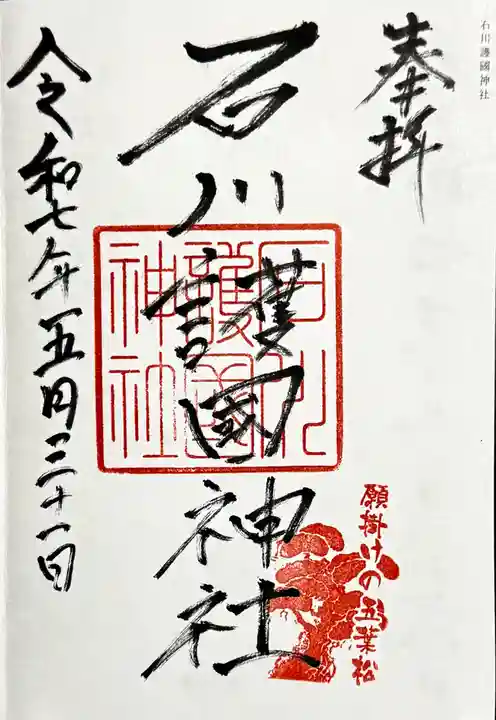 石川護國神社
奉拝
石川護國神社
石川
護国
神社
願掛けの五葉松
令和七年五月三十一日